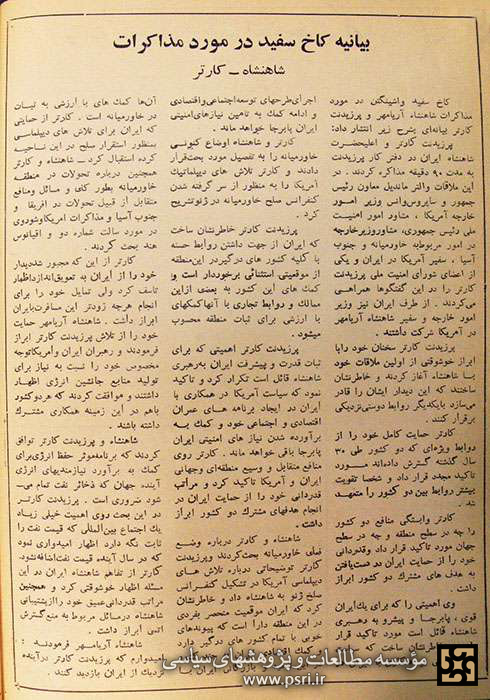 بیانیه کاخ سفید در مورد مذاکرات
شاهنشاه ـ کارتر
کاخ سفید واشینگتن در مورد
مذاکرات شاهنشاه آریامهر و پرزیدنت
کارتر بیانه‌ای بشرح زیر انتشار داد:
پرزیدنت کارتر و اعلیحضرت
شاهنشاه ایران در دفتر کار پرزیدنت
به مدت ۹۰ دقیقه مذاکره کردند. در
این ملاقات والتر ماندیل معاون رئیس
جمهور و سایروس‌وانس وزیر امور
خارجه آمریکا، مشاور امور امنیت
ملی رئیس جمهوری، مشاوروزیرخارجه
در امور مربوط‌به خاورمیانه و جنوب
آسیا، سفیر آمریکا در ایران و یکی
از اعضای شورای امنیت ملی پرزیدنت
کارتر را در این گفتگوها همراهی
می‌کردند. از طرف ایران نیز وزیر
امور خارجه و سفیر شاهنشاه آریامهر
در آمریکا شرکت داشتند.
پرزیدنت کارتر سخنان خود را با
ابراز خوشوقتی از اولین ملاقات خود
با شاهنشاه آغاز کردند و خاطرنشان
ساختند که این دیدار ایشان را قادر
می‌سازد با یکدیگر روابط دوستی‌نزدیکی
برقرار کنند.
کارتر حمایت کامل خود را از
روابط ویژه‌ای که دو کشور طی ۳۰
سال گذشته گسترش داده‌اند مورد
تاکید مجدد قرار داد و شخصا تقویت
بیشتر روابط بین دو کشور را متعهد
شد.
کارتر وابستگی منافع دو کشور
را چه در سطح منطقه و چه در سطح
جهان مورد تاکید قرار داد وقدردانی
خود را از حمایت ایران در دست‌یافتن
به هدف های مشترک دو کشور ابراز
داشت.
وی اهمیتی را که برای یک‌ایران
قوی، پابرجا و پیشرو به رهبری
شاهنشاه قائل است مورد تاکید قرار
اجرای‌طرحهای توسعه‌اجتماعی‌واقتصادی
و ادامه کمک به تامین نیازهای‌امنیتی
ایران پابرجا خواهد ماند.
کارتر و شاهنشاه اوضاع کنونی
خاورمیانه را به تفصیل مورد بحث‌قرار
دادند و کارتر تلاش های دیپلماتیک
آمریکا را به منظور از سر گرفته شدن
کنفرانس صلح خاورمیانه در ژنوتشریح
کرد.
پرزیدنت کارتر خاطرنشان ساخت
که ایران از جهت داشتن روابط حسنه
با کلیه کشور های درگیردر این‌منطقه
از موقعیتی استثنائی برخوردار است و
کمک های این کشور به بعضی ازاین
ممالک و روابط تجاری با آنهاکمکهای
با ارزشی برای ثبات منطقه محسوب
میشود.
پرزیدنت کارتر اهمیتی که برای
ثبات قدرت و پیشرفت ایران به‌رهبری
شاهنشاه قائل است تکرار کرد و تاکید
نمود که سیاست آمریکا در همکاری با
ایران در ایجاد برنامه های عمران
اقتصادی و اجتماعی خود و کمک به
برآورده شدن نیاز های امنیتی ایران
پابرجا باقی خواهد ماند. کارتر روی
منافع متقابل و وسیع منطقه‌ای وجهانی
ایران و آمریکا تاکید کرد و مراتب
قدردانی خود را از حمایت ایران در
انجام هدفهای مشترك دو کشور ابراز
داشت.
شاهنشاه و کارتر درباره وضع
فعلی خاورمیانه بحث‌کردند وپرزیدنت
کارتر توضیحاتی درباره تلاش های
دیپلماسی آمریکا در تشکیل کنفرانس
صلح ژنو به شاهنشاه داد و خاطرنشان
کرد که ایران موقعیت منحصر بفردی
در این منطقه دارا است که پیوندهای
خوبی با تمام کشور های درگیر دارد
آن‌ها کمك های با ارزشی به ثبات
در خاورمیانه است. کارتر از حمایتی
که ایران برای تلاش های دیپلماسی
بمنظور استقرار صلح در این ناحیه
کرده استقبال کرد ـ شاهنشاه و کارتر
همچنین درباره تحولات در منطقه
خاورمیانه بطور کلی و مسائل ومنافع
متقابل از قبیل تحولات در افریقا و
جنوب آسیا و مذاکرات امریکاوشوروی
در مورد سالت شماره دو و اقیانوس
هند بحث کردند.
کارتر از این که مجبور شددیدار
خود را از ایران به تعویق‌انداز‌داظهار
تاسف کرد ولی تمایل خود را برای
انجام هرچه زودتر این مسافرت‌بایران
ابراز داشت. شاهنشاه آریامهر حمایت
خود را از تلاش پرزیدنت کارتر ابراز
فرمودند و رهبران ایران وآمریکاتوجه
مخصوص خود را نسبت به نیاز برای
تولید منابع جانشین انرژی اظهار
داشتند و موافقت کردند که هردوکشور
باهم در این زمینه همکاری مشترک
داشته باشند.
شاهنشاه و پرزیدنت کارتر توافق
کردند که برنامه‌موثر حفظ انرژی‌برای
کمک به برآورد نیازمندیهای انرژی
آینده جهان که ذخائر نفت تمام می‌ـ
شود ضروری است. پرزیدنت کارتر
در این بحث روی اهمیت خیلی زیاد
یك اجتماع بین‌المللی که قیمت نفت را
ثابت نگه دارد اظهار امیدواری نمود
که در سال آینده قیمت نفت‌اضافه‌نشود
کارتر از تفاهم شاهنشاه ایران در این
مسئله اظهار خوشوقتی کرد و همچنین
مراتب قدردانی‌عمیق خود رااز‌پشتیبانی
شاهنشاه درمسائل مربوط به منع‌گسترش
اتمی ابراز داشت.
شاهنشاه آریامهر فرمودند:
امیدوارم که پرزیدنت کارتر درآینده
نزدیك از ایران بازدید کنند.
مؤسسه مطالعات و پژوهشهای سیاسی
www.psri.ir